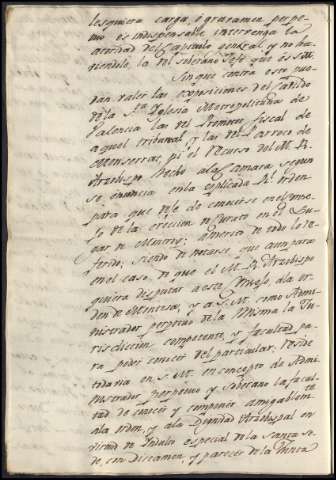 lesquiera carga, ó gravamen perpe-
tuo es indispensable intervenga la
autoridad del Capitulo general, y no ha-
viendole, la del Soberano Gefe que es S.M.
Sin que contra esto pue-
dan valer las exposiciones del Cavildo
de la Sta Iglesia Metropolitana de
Valencia, las del Promotor fiscal de
aquel tribunal, y las del Parroco de
Monserrat, ni el recurso del M. R.
Arzobispo hecho a la Camara segun
se enuncia en la explicada Rl orden
para que deje de conocer el Conse-
jo de la ereccion de Curato en el Lu-
gar de Montroy; á merito de todo lo re-
ferido; siendo de notarse que aun para
en el caso de que el M. R. Arzobispo
quiera disputar a este Consejo, a la or-
den de Montesa, y a S.M. como Admi-
nistrador perpetuo de la misma la Ju-
risdiccion competente, y facultad pa-
ra poder conocer del particular; reside
todavia en S.M. en concepto de Admi-
nistrador perpetuo y Soberano la facul-
tad de conocer y componer amigablemte
a la orden, y a la Dignidad Arzobispal en
virtud de Indulto especial de la Santa Se-
de, con dictamen, y parecer de la